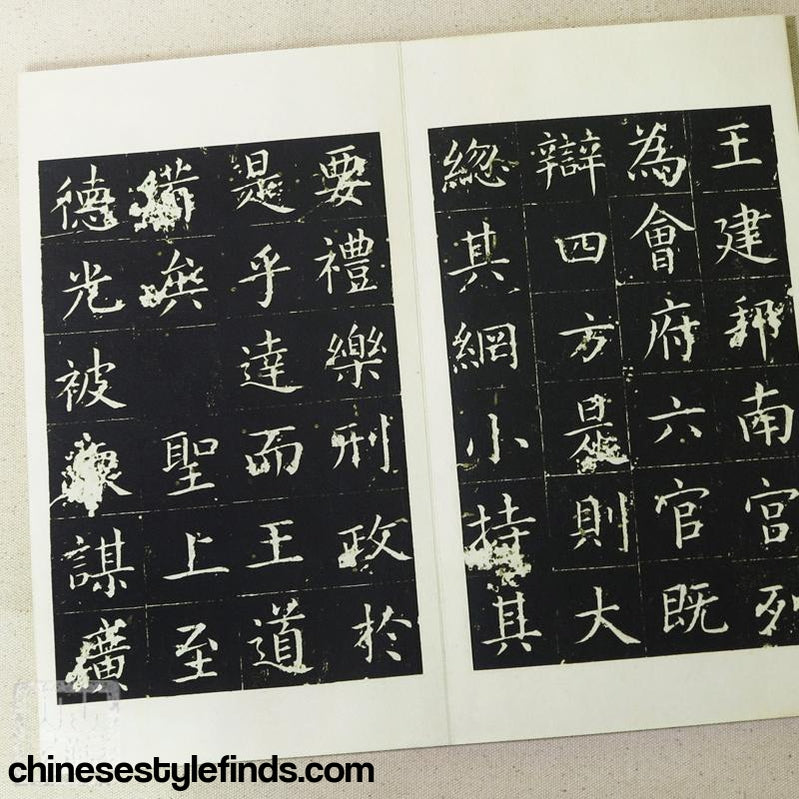 王建邦南宮列
為會府六官既
辯四方是則大
緫其網小持其
要禮樂刑政於
是乎達而王道
備矣 聖上至
德光被謀廣
chinesestylefinds.com